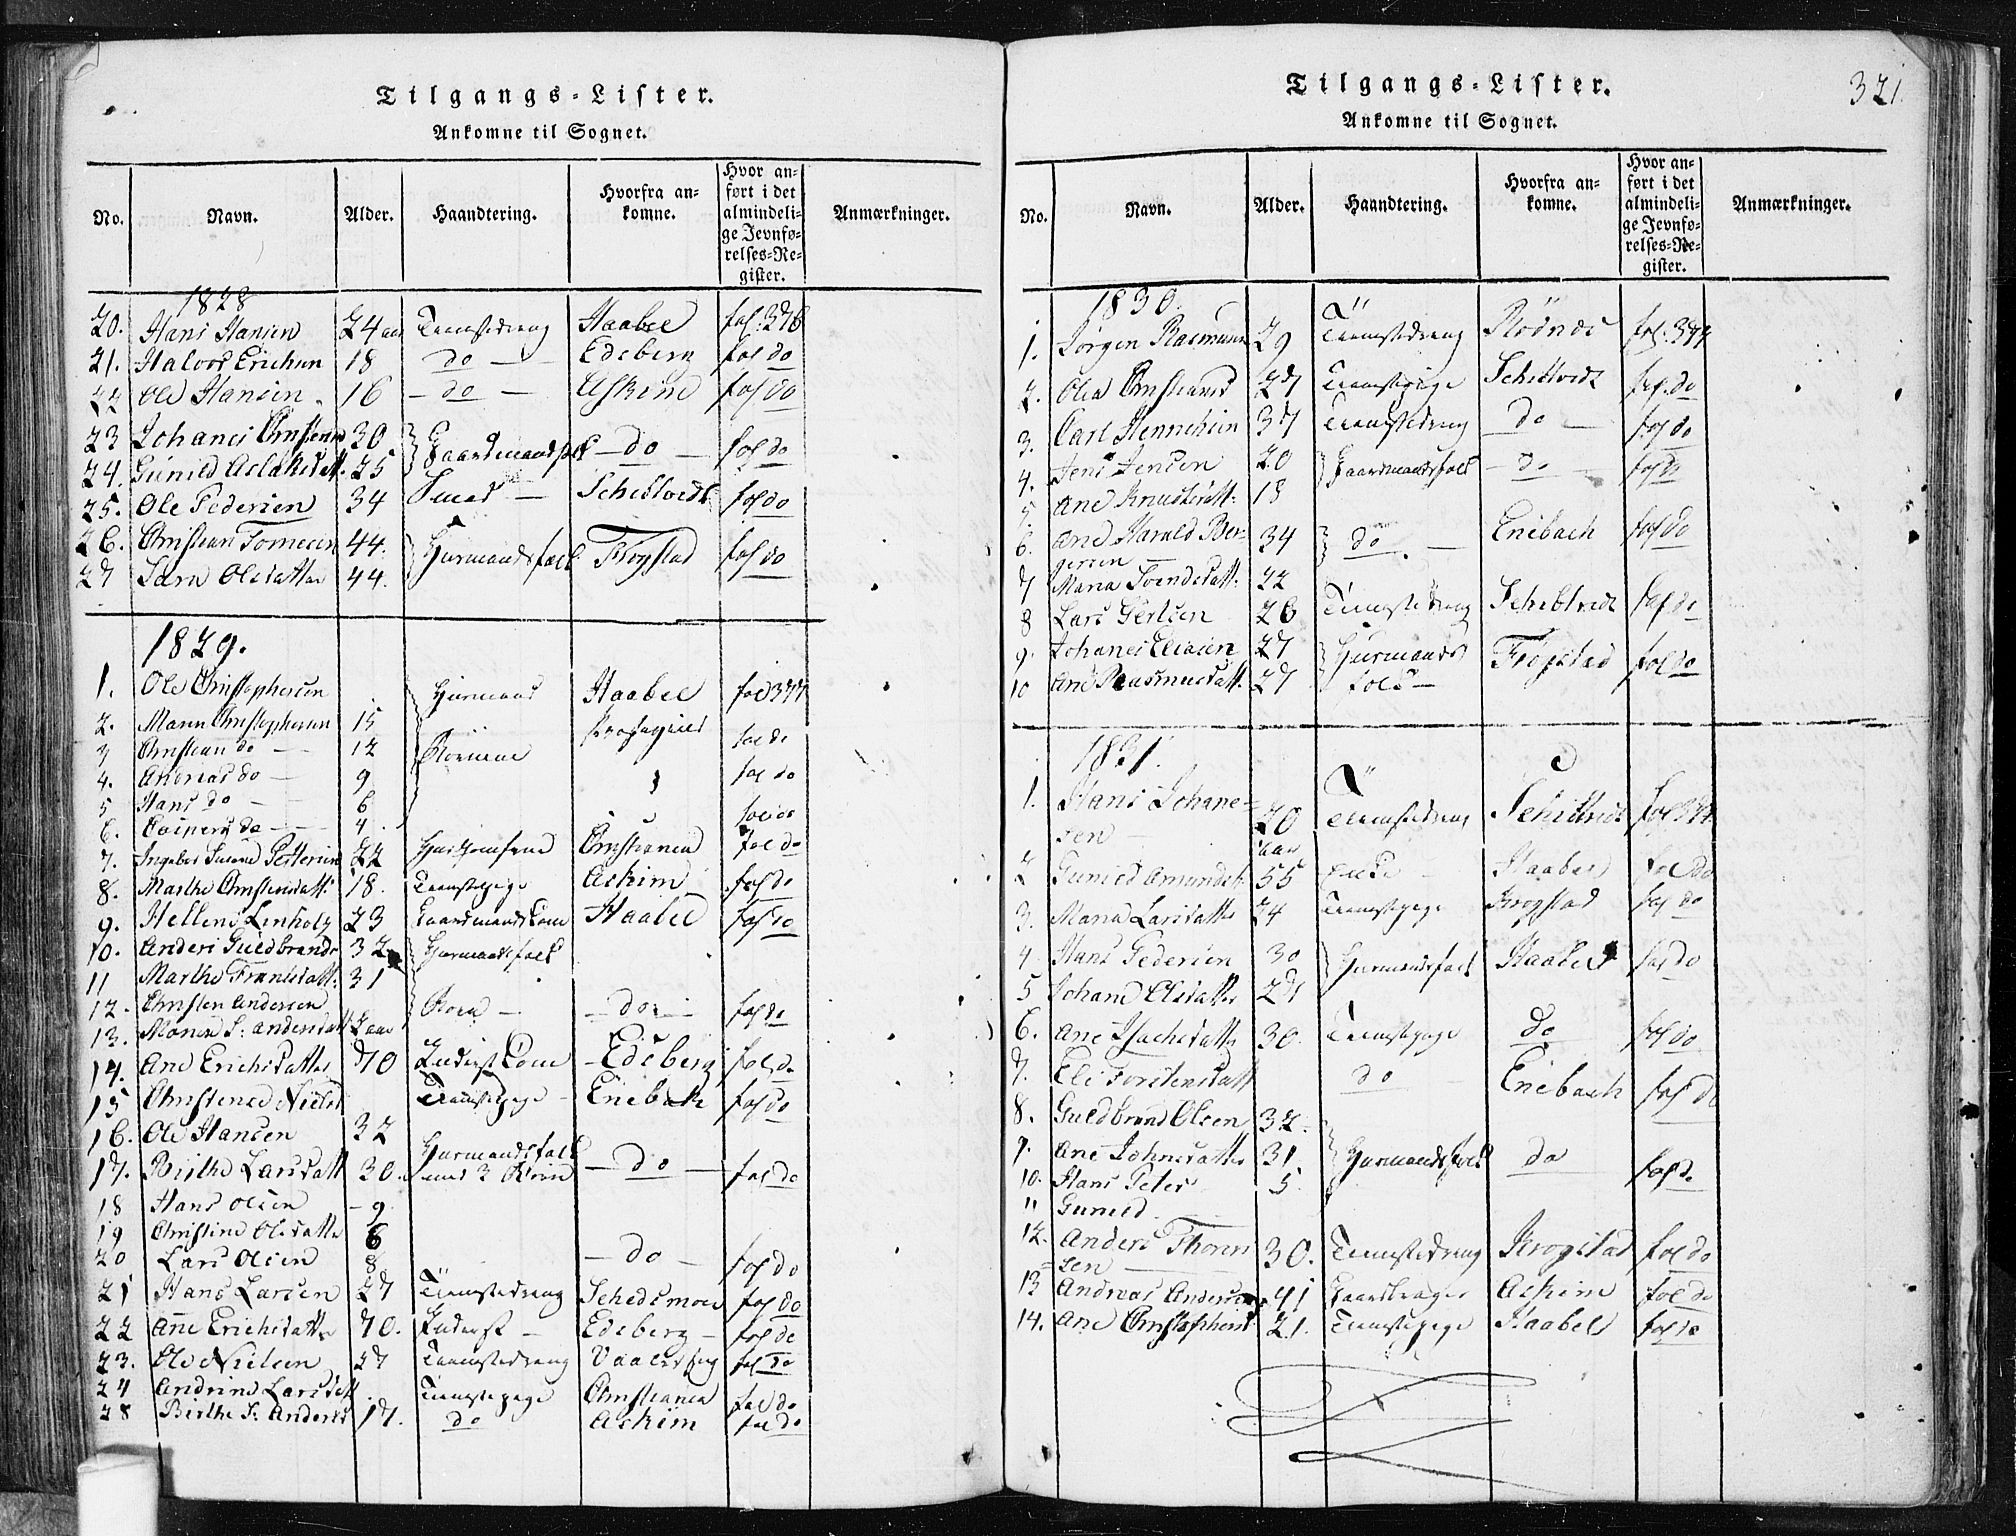 Tilgangs-Lister.
Ankomne til Sognet.
No. Navn. Alder. Haandtering. Hvorfra ankomne. Hvor anført i det almindelige Jevnførelses-Register. Anmærkninger.
1828
20. Hans Hansen 24 aar Tienestedreng Haabel fol: 376
21. Halvor Erichsen 18 do Edsberg fol do
22 Ole Hansen 16 do Askim fol do
23 Johanes Christens 30 Gaardmandsfolk do fol do
24. Gunild Aslaksdatt. 25
25. Ole Pedersen 34 Smed Schibtvedt fol do
26. Christian Tomesen 44. Huusmandsfolk Frogstad fol do
27 Sara Olsdatter 44.
1829.
1. Ole Christophersen Huusmand Haabel fol 377
2. Maren Christophersen 15 fol do
3 Christian do 12 Børnene
4. Andreas do 9 fol do
5 Hans do 6
6. Casper do 4. fol do
7. Ingebor Petersen 22 Christiania fol do
8. Marthe Christensdatt: 18. Tienestepige Askim fol do
9. Hellene Lenholz 23 Gaardmandskone Haabel fol do
10. Anders Guldbrands 32 Huusmandsfolk
11 Marthe Frantsdatt: 31
12. Christen Andersen Børn do fol do
13. S: Andersdatt 2 aar
14. Ane Erichsdatter 70 Inderstkone Edsberg fol do
15 Christence Nielsd Tienestepige Enebak fol do
16. Ole Hansen 32 Huusmandsfolk
17. Birthe Larsdatt 30. med 3 Børn do fol do
18 Hans Olsen 9
19 Christine Olsdatter 6
20 Lars Olsen 8 do fol do
21 Hans Larsen 27 Tienestedreng Schedsmoe fol do
22 Ane Erichsdatter 70. Inderst Edsberg fol do
23. Ole Nielsen 27 Tienestedreng Vaaler fol do
24 Andrine Larsdatt Tienestepige Christiania fol do
28 Birthe S: Andersd 17. do Askim fol do
321.
Tilgangs-Lister.
Ankomne til Sognet.
No. Navn. Alder. Haandtering. Hvorfra ankomne. Hvor anført i det almindelige Jevnførelses-Register. Anmærkninger.
1830.
1. Jørgen Rasmusen 29 Tienestedreng Rødnes fol. 377
2. Olea Christiansd 27 Tienestepige Schibtvedt fol. do
3. Carl Hennehsen 37 Tienestedreng do fol do
4. Jens Jensen 20 Gaardmandsfolk do fol do
5 Ane Knudsdatt: 18
6. Ane Harald Ber- 34 do Enebach fol do
gersen
7 Maria Svendsdatt. 22
8 Lars Gertsen 26 Tienestedreng Schibtvedt fol do
9. Johanes Eliasen 27 Huusmands Frogstad fol do
10 Ane Rasmusdatt. 27 folk
1831.
1. Hans Johane- 20 Tienestedreng Schibtvedt fol 377
sen aar
2 Gunild Amundsd. 55 Enke Haabel fol do
3. Maria Larsdatter 24 Tienestepige Krogstad fol do
4 Hans Pedersen 30 Huusmandsfolk Haabel fol do
5 Johane Olsdatter 27
6. Ane Isachsdatter 30. Tienestepige do fol do
7. Eli Torstensdatt do Enebach fol do
8. Guldbrand Olsen 32.
9. Ane Johnsdatter 31. Huusmandsfolk do fol do
10. Hans Peter 5
11 Gunild
12. Anders Thoren 30. Tienestedreng Krogstad fol do
sen
13 Andreas Andersen 41 Gaardbruger Askim fol do
14. Ane Christophersd 21. Tienestepige Haabel fol do